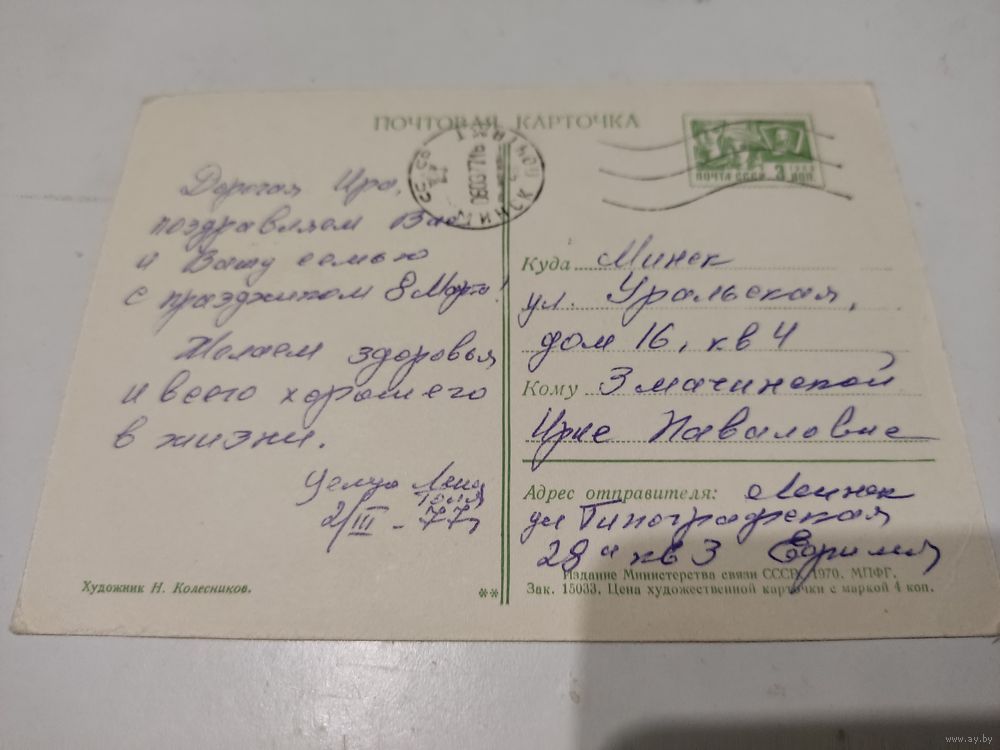 ПОЧТОВАЯ КАРТОЧКА
ПОЧТА СССР 3 коп.
МИНСК
Дорогая Ира,
поздравляем Вас
и Вашу семью
с праздником 8 Марта!
Желаем здоровья
и всего хорошего
в жизни.
Целую
2/III - 77г
Художник Н. Колесников.
**
Куда Минск
ул. Уральская,
дом 16, кв 4
Кому Змачинской
Ирне Паваловне
Адрес отправителя: Минск
ул Типографская
28а кв 3
Издание Министерства связи СССР. 1970. МПФГ.
Зак. 15033. Цена художественной карточки с маркой 4 коп.
www.ay.by